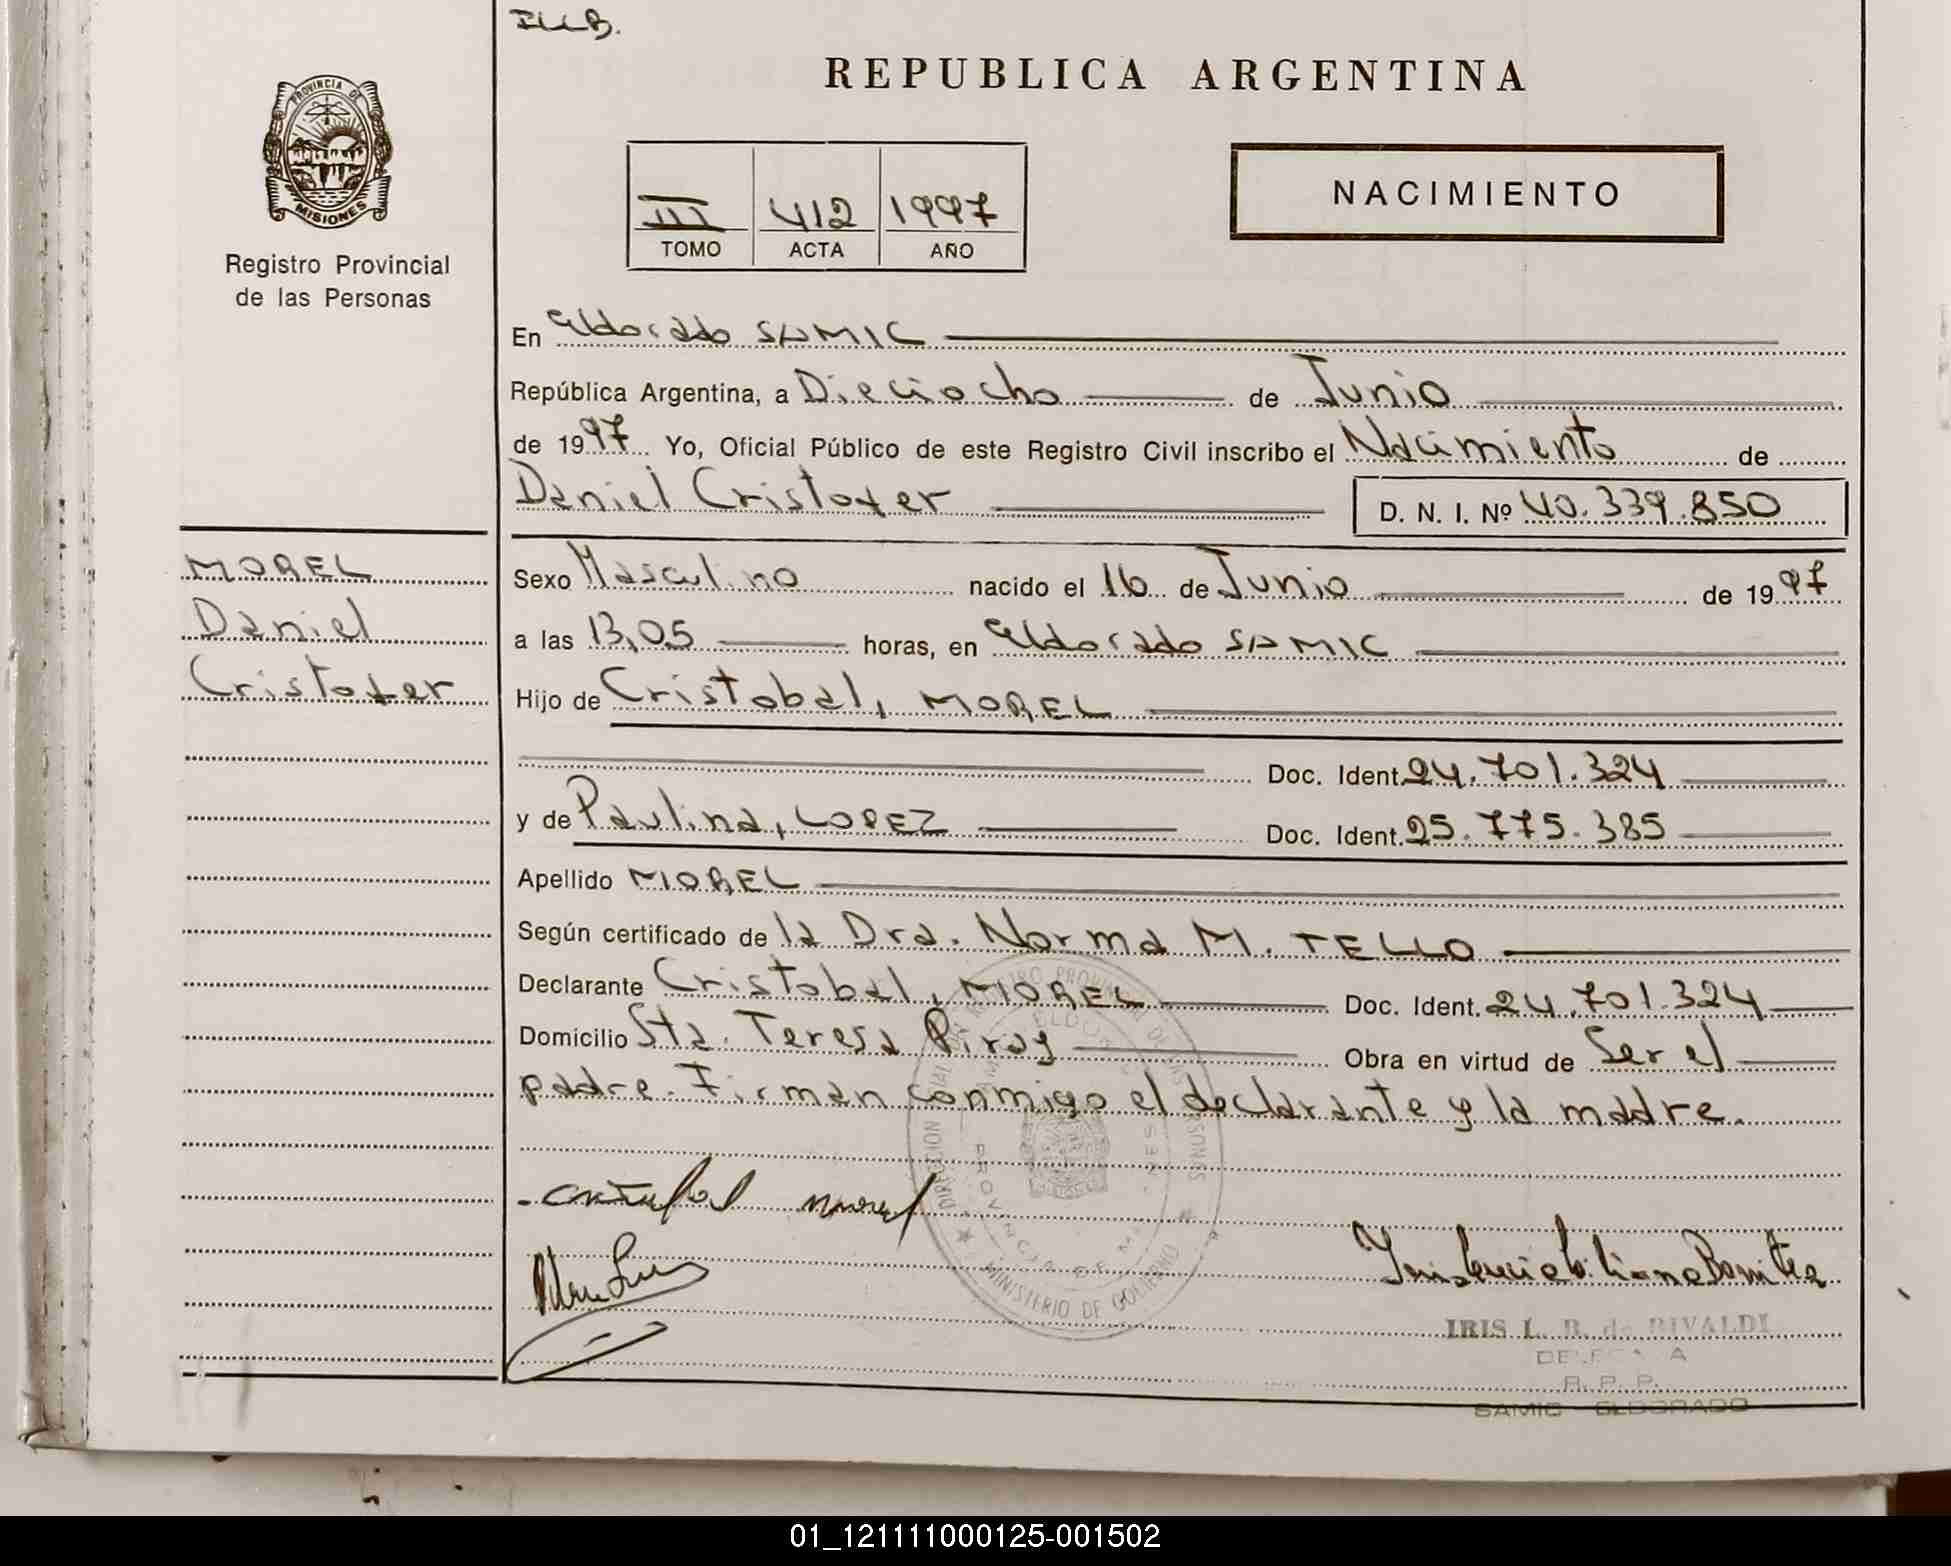 ILLB.
REPUBLICA ARGENTINA
PROVINCIA DE
MISIONES
Registro Provincial
de las Personas
III 412 1997
TOMO ACTA AÑO
NACIMIENTO
En Eldorado SAMIC
República Argentina, a Dieciocho de Junio
de 1997 Yo, Oficial Público de este Registro Civil inscribo el Nacimiento de
Daniel Cristofer D. N. I. Nº 40.339.850
MOREL
Daniel
Cristofer
Sexo Masculino nacido el 16 de Junio de 1997
a las 13,05 horas, en Eldorado SAMIC
Hijo de Cristobal, MOREL
Doc. Ident. 24.701.324
y de Paulina, LOPEZ Doc. Ident. 25.775.385
Apellido MOREL
Según certificado de la Dra. Norma M. TELLO
Declarante Cristobal, MOREL Doc. Ident. 24.701.324
Domicilio Sta. Teresa Piray Obra en virtud de Ser el
padre. Firman conmigo el declarante y la madre.
MINISTERIO DE GOBIERNO
IRIS L. B. de RIVALDI
DELEGADA
R. P. P.
SAMIC ELDORADO
01_121111000125-001502